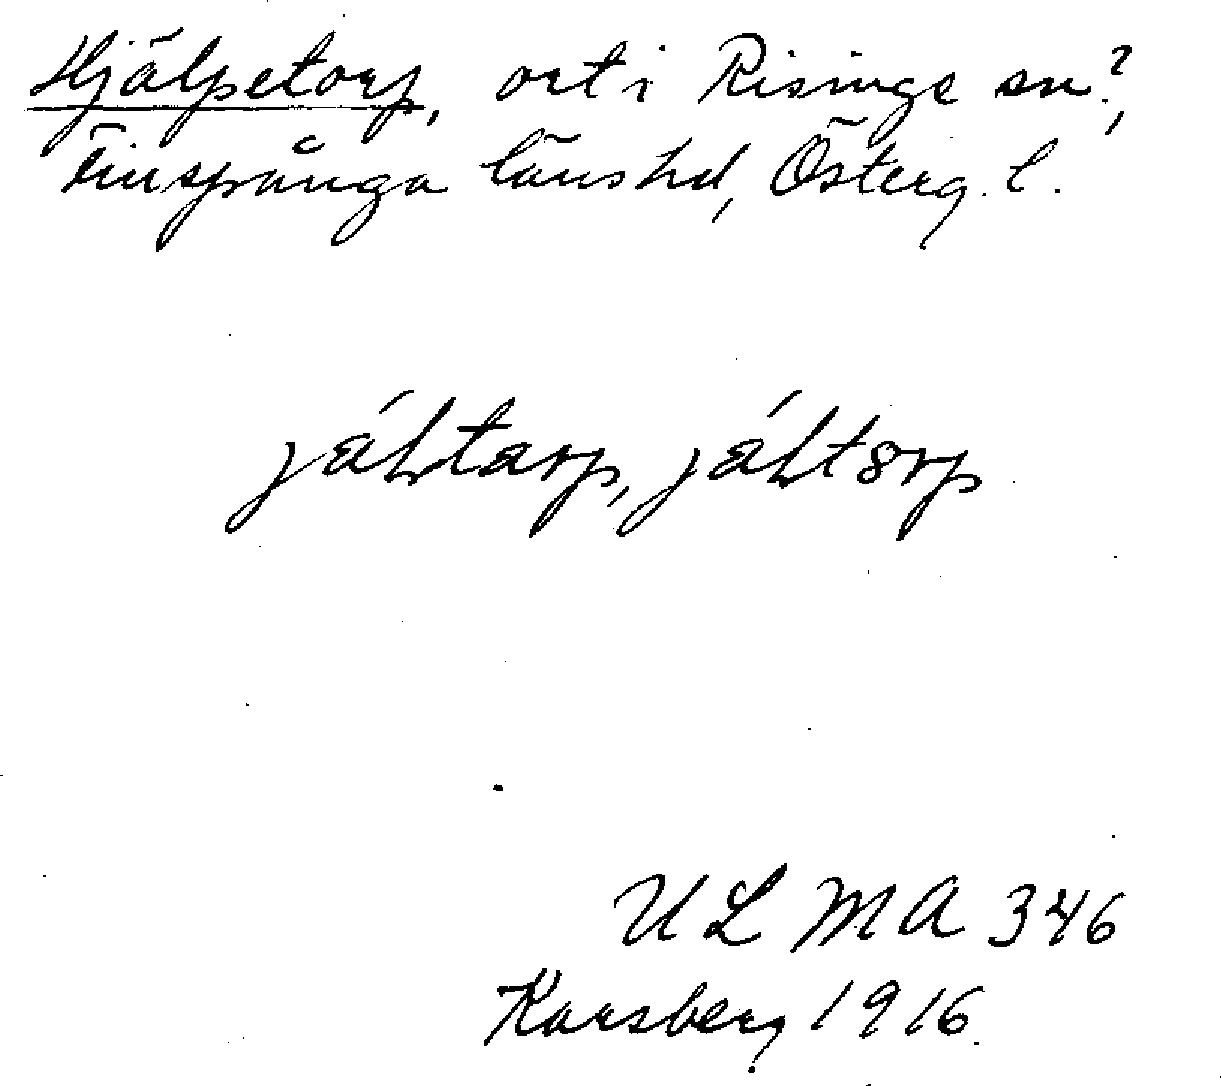 Hjälpetorp, ort i Risinge sn?,
Finspånga länshd, Österg. l.
jáltarp, jáltorp
ULMA 346
Karsberg 1916